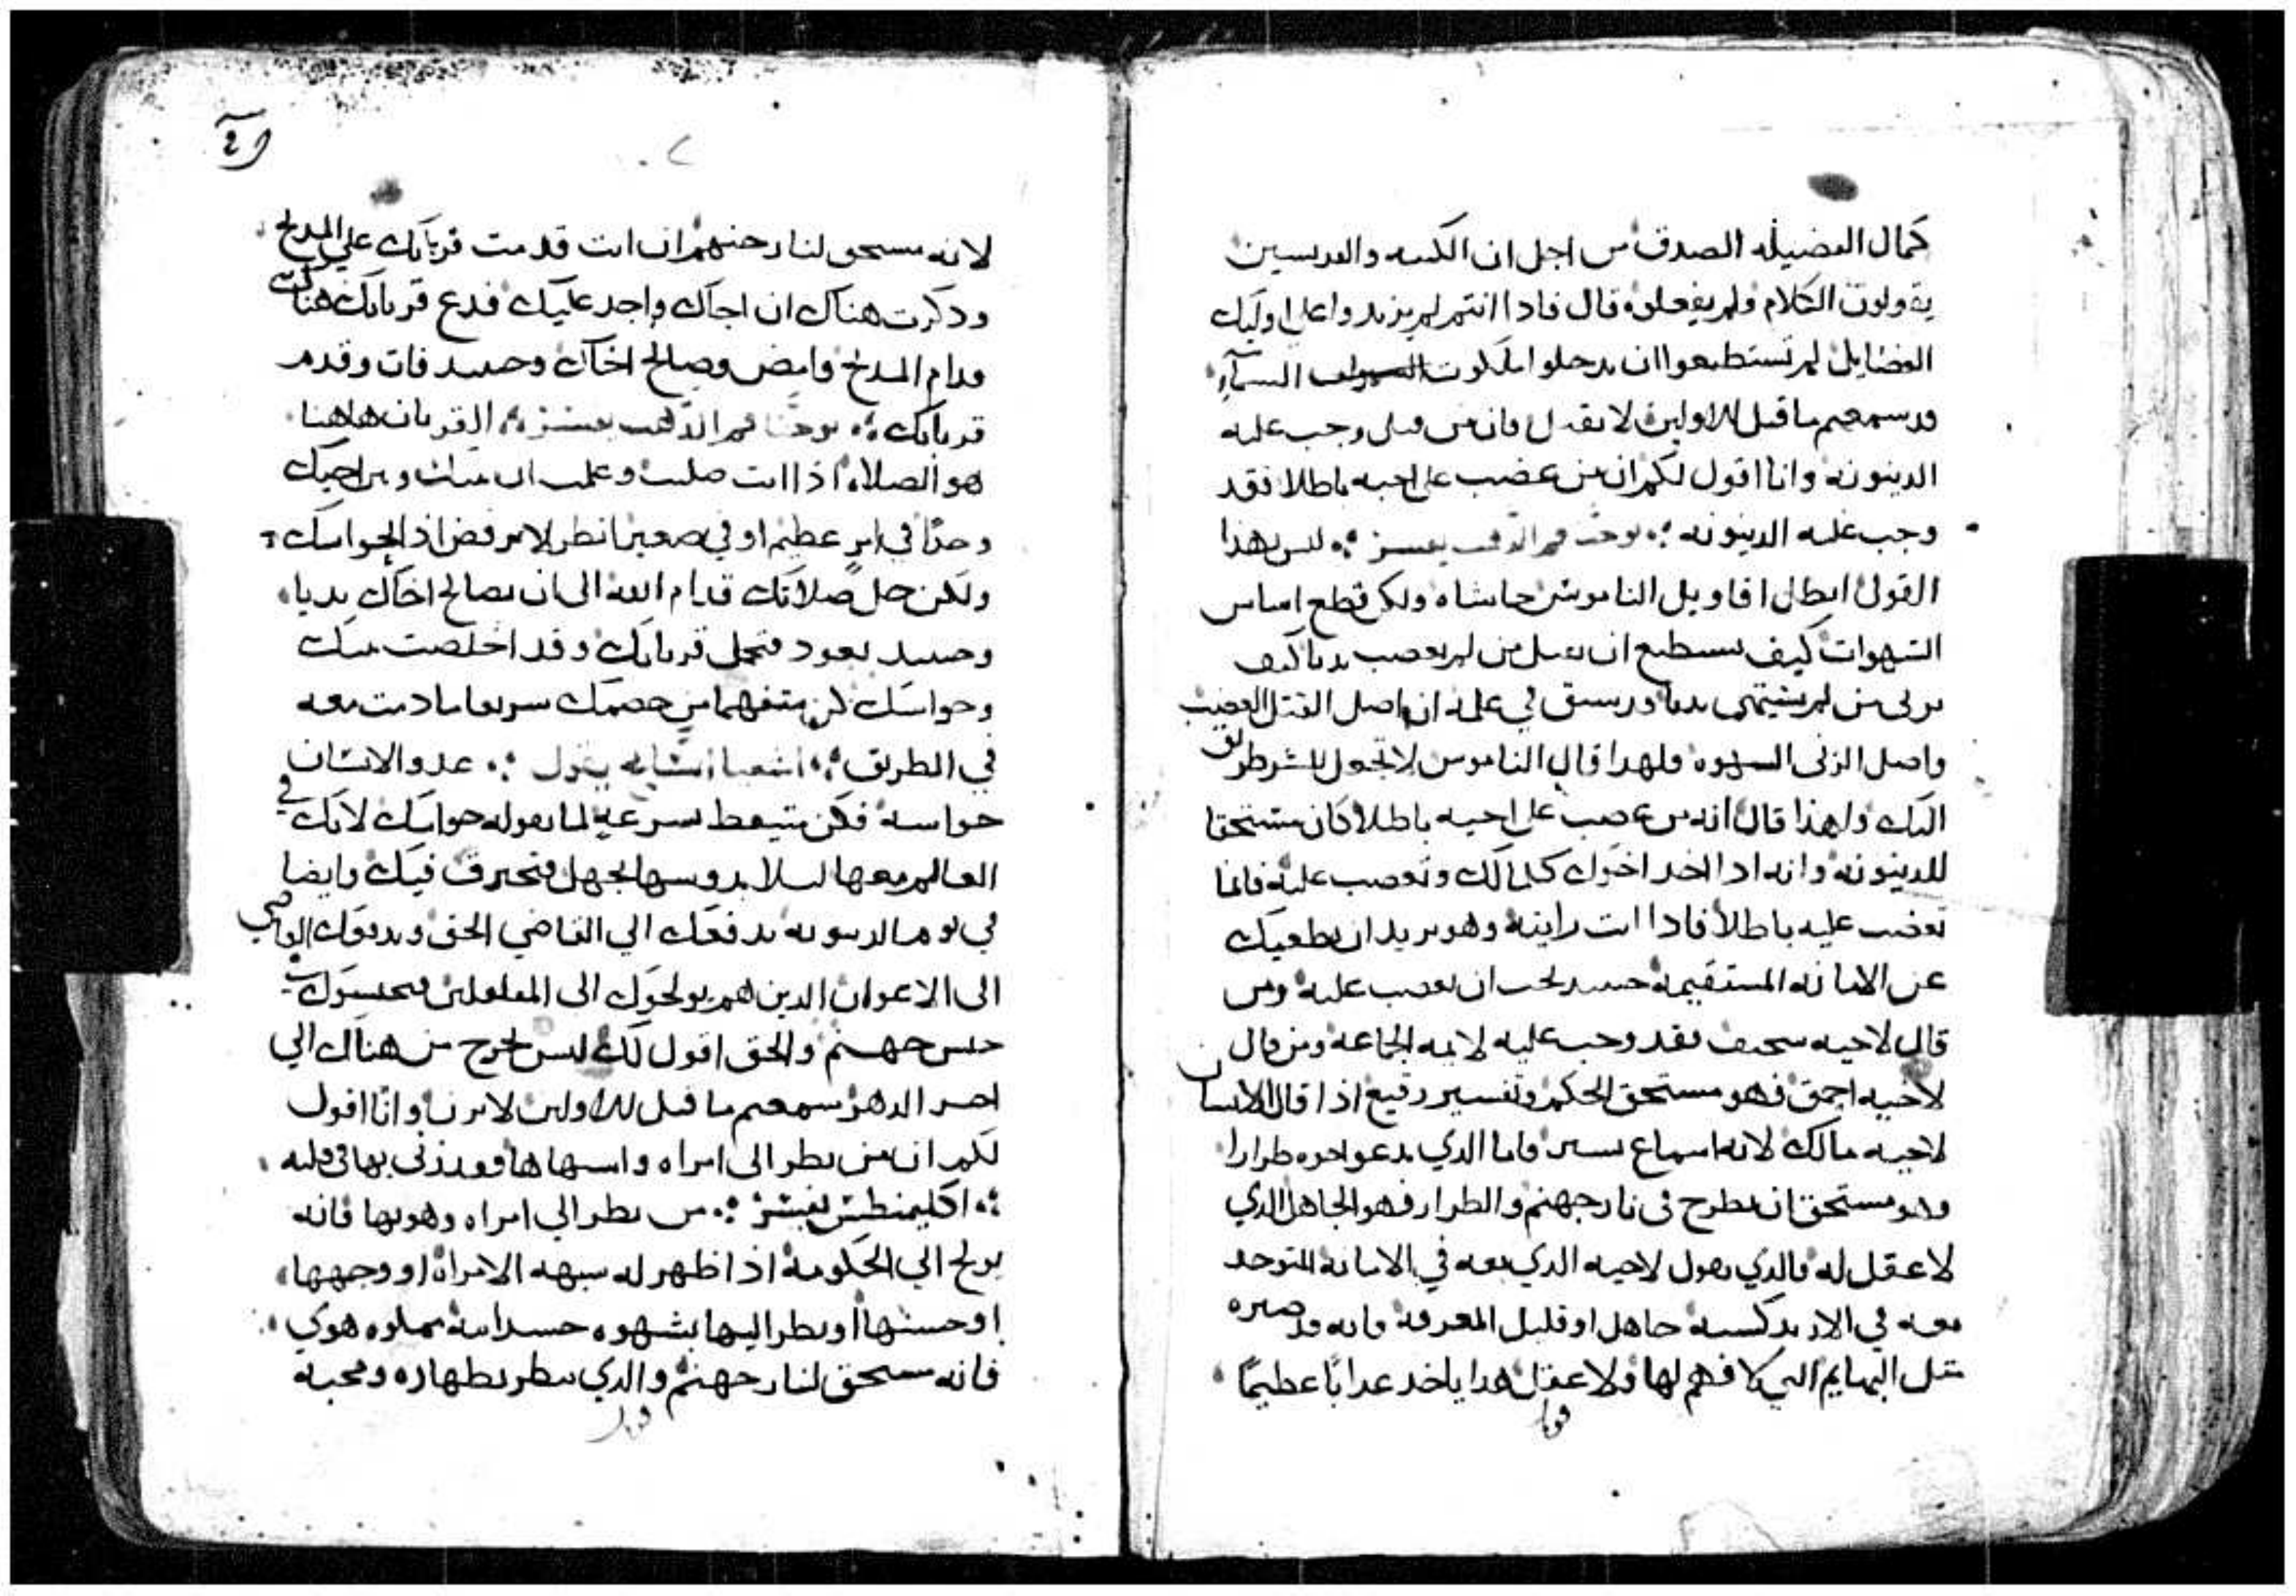 كمال الفضيله الصدق من اجل ان الكتبه والفريسيين
يقولون الكلام ولم يفعلوه قال فاذا انتم لم يزيدوا على اوليك
الفضايل لم تستطيعوا ان تدخلوا ملكوت السماوات السمآء
قد سمعتم ما قيل للاولين لا تقتل فان من قتل وجب عليه
الدينونه وانا اقول لكم ان من غضب على اخيه باطلا فقد
وجب عليه الدينونه يوحنا فم الدهب يفسر ليس هذا
القول ابطال اقاويل الناموس حاشاه ولكن قطع اساس
الشهوات كيف يستطيع ان يقتل من لم يغضب بديا كيف
يزني من لم يشتهي بديا وقد سبق في علمه ان اصل القتل الغضب
واصل الزنى الشهوه فلهدا قال الناموس لا تجعل للشر طريق
اليك ولهذا قال انه من غضب على اخيه باطلا كان مستحقا
للدينونه وانه اذا اخد اخوك كلما لك وتغضب عليه فانما
تغضب عليه باطلا فاذا انت رايته وهو يريد ان يطغيك
عن الامانه المستقيمه حينيد يجب ان تغضب عليه ومن
قال لاخيه سخيف فقد وجب عليه لايمه الجماعه ومن قال
لاخيه احمق فهو مستحق الحكم وتفسير رقيع اذا قال الانسان
لاخيه مالك لانه اسماع يسير فاما الدي يدعو اخوه طرارا
وهو مستحق ان يطرح في نار جهنم والطرار فهو الجاهل الدي
لا عقل له فالدي يقول لاخيه الدي معه في الامانه المتوحد
معه في الارتدكسيه جاهل او قليل المعرفه فانه قد صيره
متل البهايم التي لا فهم لها ولا عقل هدا ياخد عدابا عظيما
لانه مستحق لنار جهنم ان انت قدمت قربانك على المدبح
ودكرت هناك ان اخاك واجد عليك فدع قربانك هناك
قدام المدبح وامض وصالح اخاك وحينيد فات وقدم
قربانك يوحنا فم الدهب يفسر القربان هاهنا
هو الصلاه اذا انت صليت وعلمت ان بينك وبين اخيك
وجدًا في امر عظيم او في صغير انظر لا ترفض اذ الجواسك
ولكن خل صلاتك قدام الله الى ان تصالح اخاك بديا
وحينيد تعود فتحمل قربانك وقد اخلصت نيتك
وحواسك كن متفهما من خصمك سريعا ما دمت معه
في الطريق اشعيا يقول عدو الانسان
حواسه فكن متيقظ بسرعه لما تقوله حواسك لانك في
العالم معها ليلا يدوسها الجهل فتحترق فيك وايضا
في يوم الدينونه تدفعك الي القاضي الحق ويدفعك القاضي
الى الاعوان الدين هم يولجوك الى المغلولين فيحبسوك في
حبس جهنم والحق اقول لك ليس تخرج من هناك الي
اخر الدهر سمعتم ما قيل للاولين لا تزن وانا اقول
لكم ان من نظر الى امراه واشتهاها فقد زنى بها في قلبه
اكليمنطس يفسر من نظر الي امراه وهويها فانه
يولج الي الحكومه اذ اظهر له شبهه الامراه او وجهها
او حسنها او نظر اليها بشهوه جسدانيه مملوه هوي
فانه مستحق لنار جهنم والدي ينظر بطهاره ومحبه